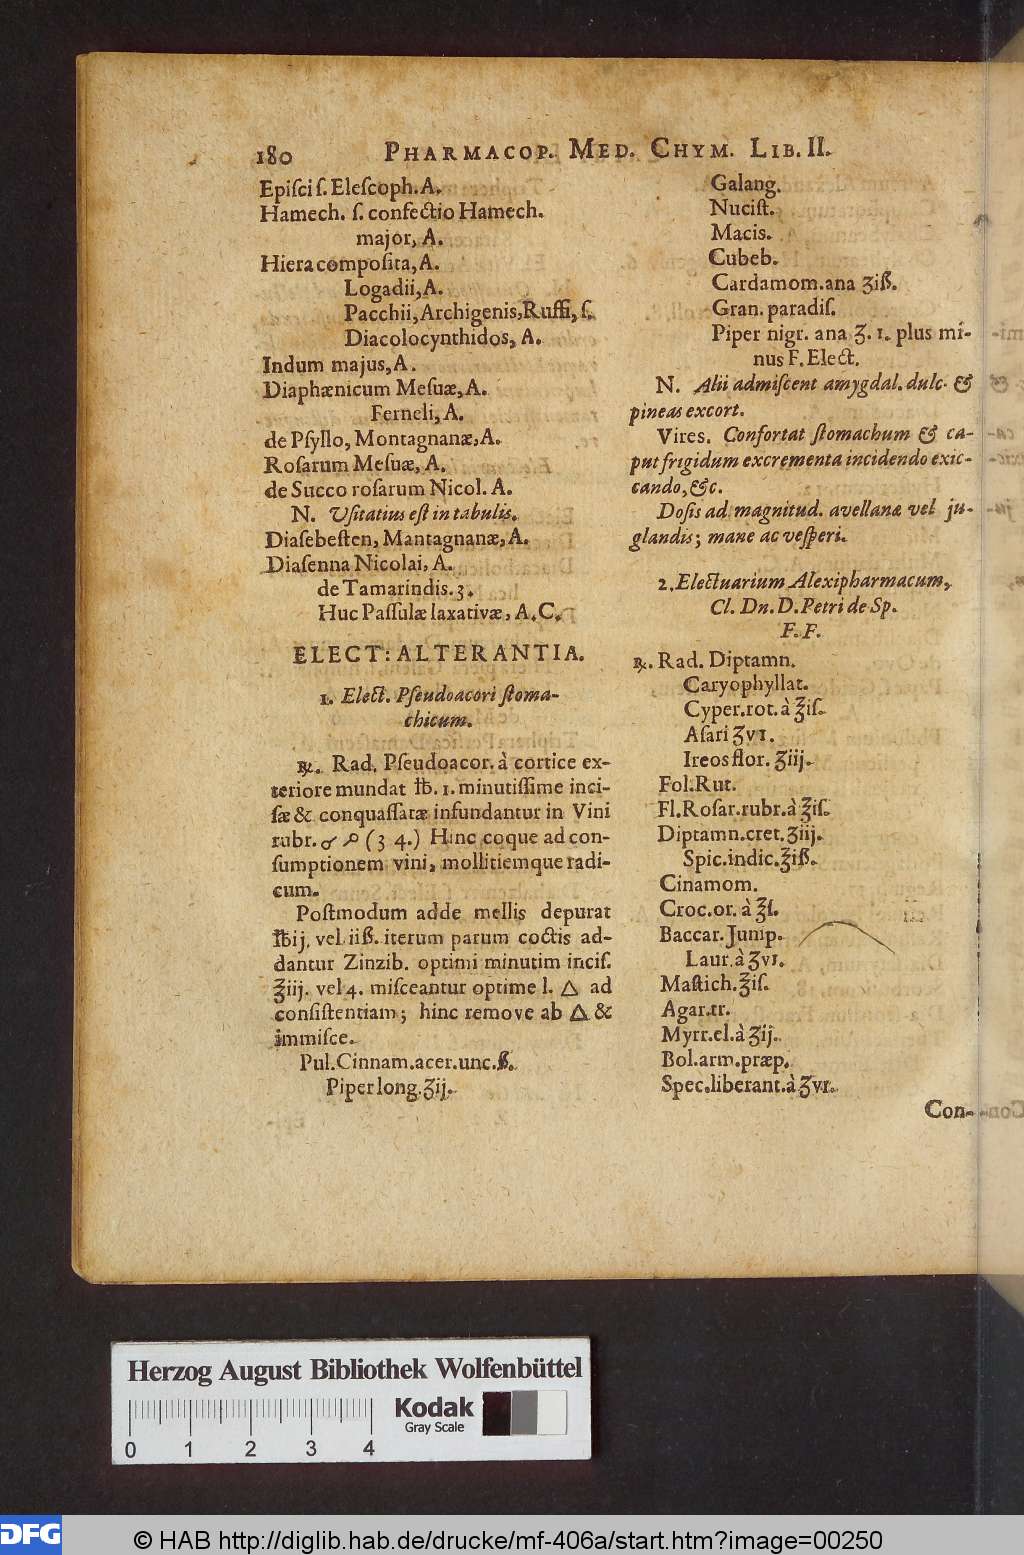 180 PHARMACOP. MED. CHYM. LIB. II.
Epiſci ſ. Eleſcoph. A.
Hamech. ſ. confectio Hamech.
major, A.
Hiera compoſita, A.
Logadii, A.
Pacchii, Archigenis, Ruffi, ſ.
Diacolocynthidos, A.
Indum majus, A.
Diaphænicum Meſuæ, A.
Ferneli, A.
de Pſyllo, Montagnanæ, A.
Roſarum Meſuæ, A.
de Succo roſarum Nicol. A.
N. Uſitatius eſt in tabulis.
Diaſebeſten, Mantagnanæ, A.
Diaſenna Nicolai, A.
de Tamarindis. 3.
Huc Paſſulæ laxativæ, A. C.
ELECT: ALTERANTIA.
1. Elect. Pſeudoacori ſtoma-
chicum.
℞. Rad. Pſeudoacor. à cortice ex-
teriore mundat ℔. 1. minutiſſime inci-
ſæ & conquaſſatæ infundantur in Vini
rubr. (3 4.) Hinc coque ad con-
ſumptionem vini, mollitiemque radi-
cum.
Poſtmodum adde mellis depurat
℔ij. vel iiß. iterum parum coctis ad-
dantur Zinzib. optimi minutim inciſ.
℥iij. vel 4. miſceantur optime l. △ ad
conſiſtentiam; hinc remove ab △ &
immiſce.
Pul. Cinnam. acer. unc. ß.
Piper long. ʒij.
Galang.
Nuciſt.
Macis.
Cubeb.
Cardamom. ana ʒiß.
Gran. paradiſ.
Piper nigr. ana ʒ. 1. plus mi-
nus F. Elect.
N. Alii admiſcent amygdal. dulc. &
pineas excort.
Vires. Confortat ſtomachum & ca-
put frigidum excrementa incidendo exic-
cando, &c.
Doſis ad magnitud. avellanæ vel ju-
glandis; mane ac veſperi.
2. Electuarium Alexipharmacum,
Cl. Dn. D. Petri de Sp.
F. F.
℞. Rad. Diptamn.
Caryophyllat.
Cyper. rot. à ℥iſ.
Aſari ʒvı.
Ireos flor. ʒiij.
Fol. Rut.
Fl. Roſar. rubr. à ℥iſ.
Diptamn. cret. ʒiij.
Spic. indic. ℥iß.
Cinamom.
Croc. or. à ℥ſ.
Baccar. Junip.
Laur. à ʒvı.
Maſtich. ℥iſ.
Agar. tr.
Myrr. el. à ʒij.
Bol. arm. præp.
Spec. liberant. à ʒvı.
Con-
Herzog August Bibliothek Wolfenbüttel
Kodak
Gray Scale
0 1 2 3 4
DFG
© HAB http://diglib.hab.de/drucke/mf-406a/start.htm?image=00250